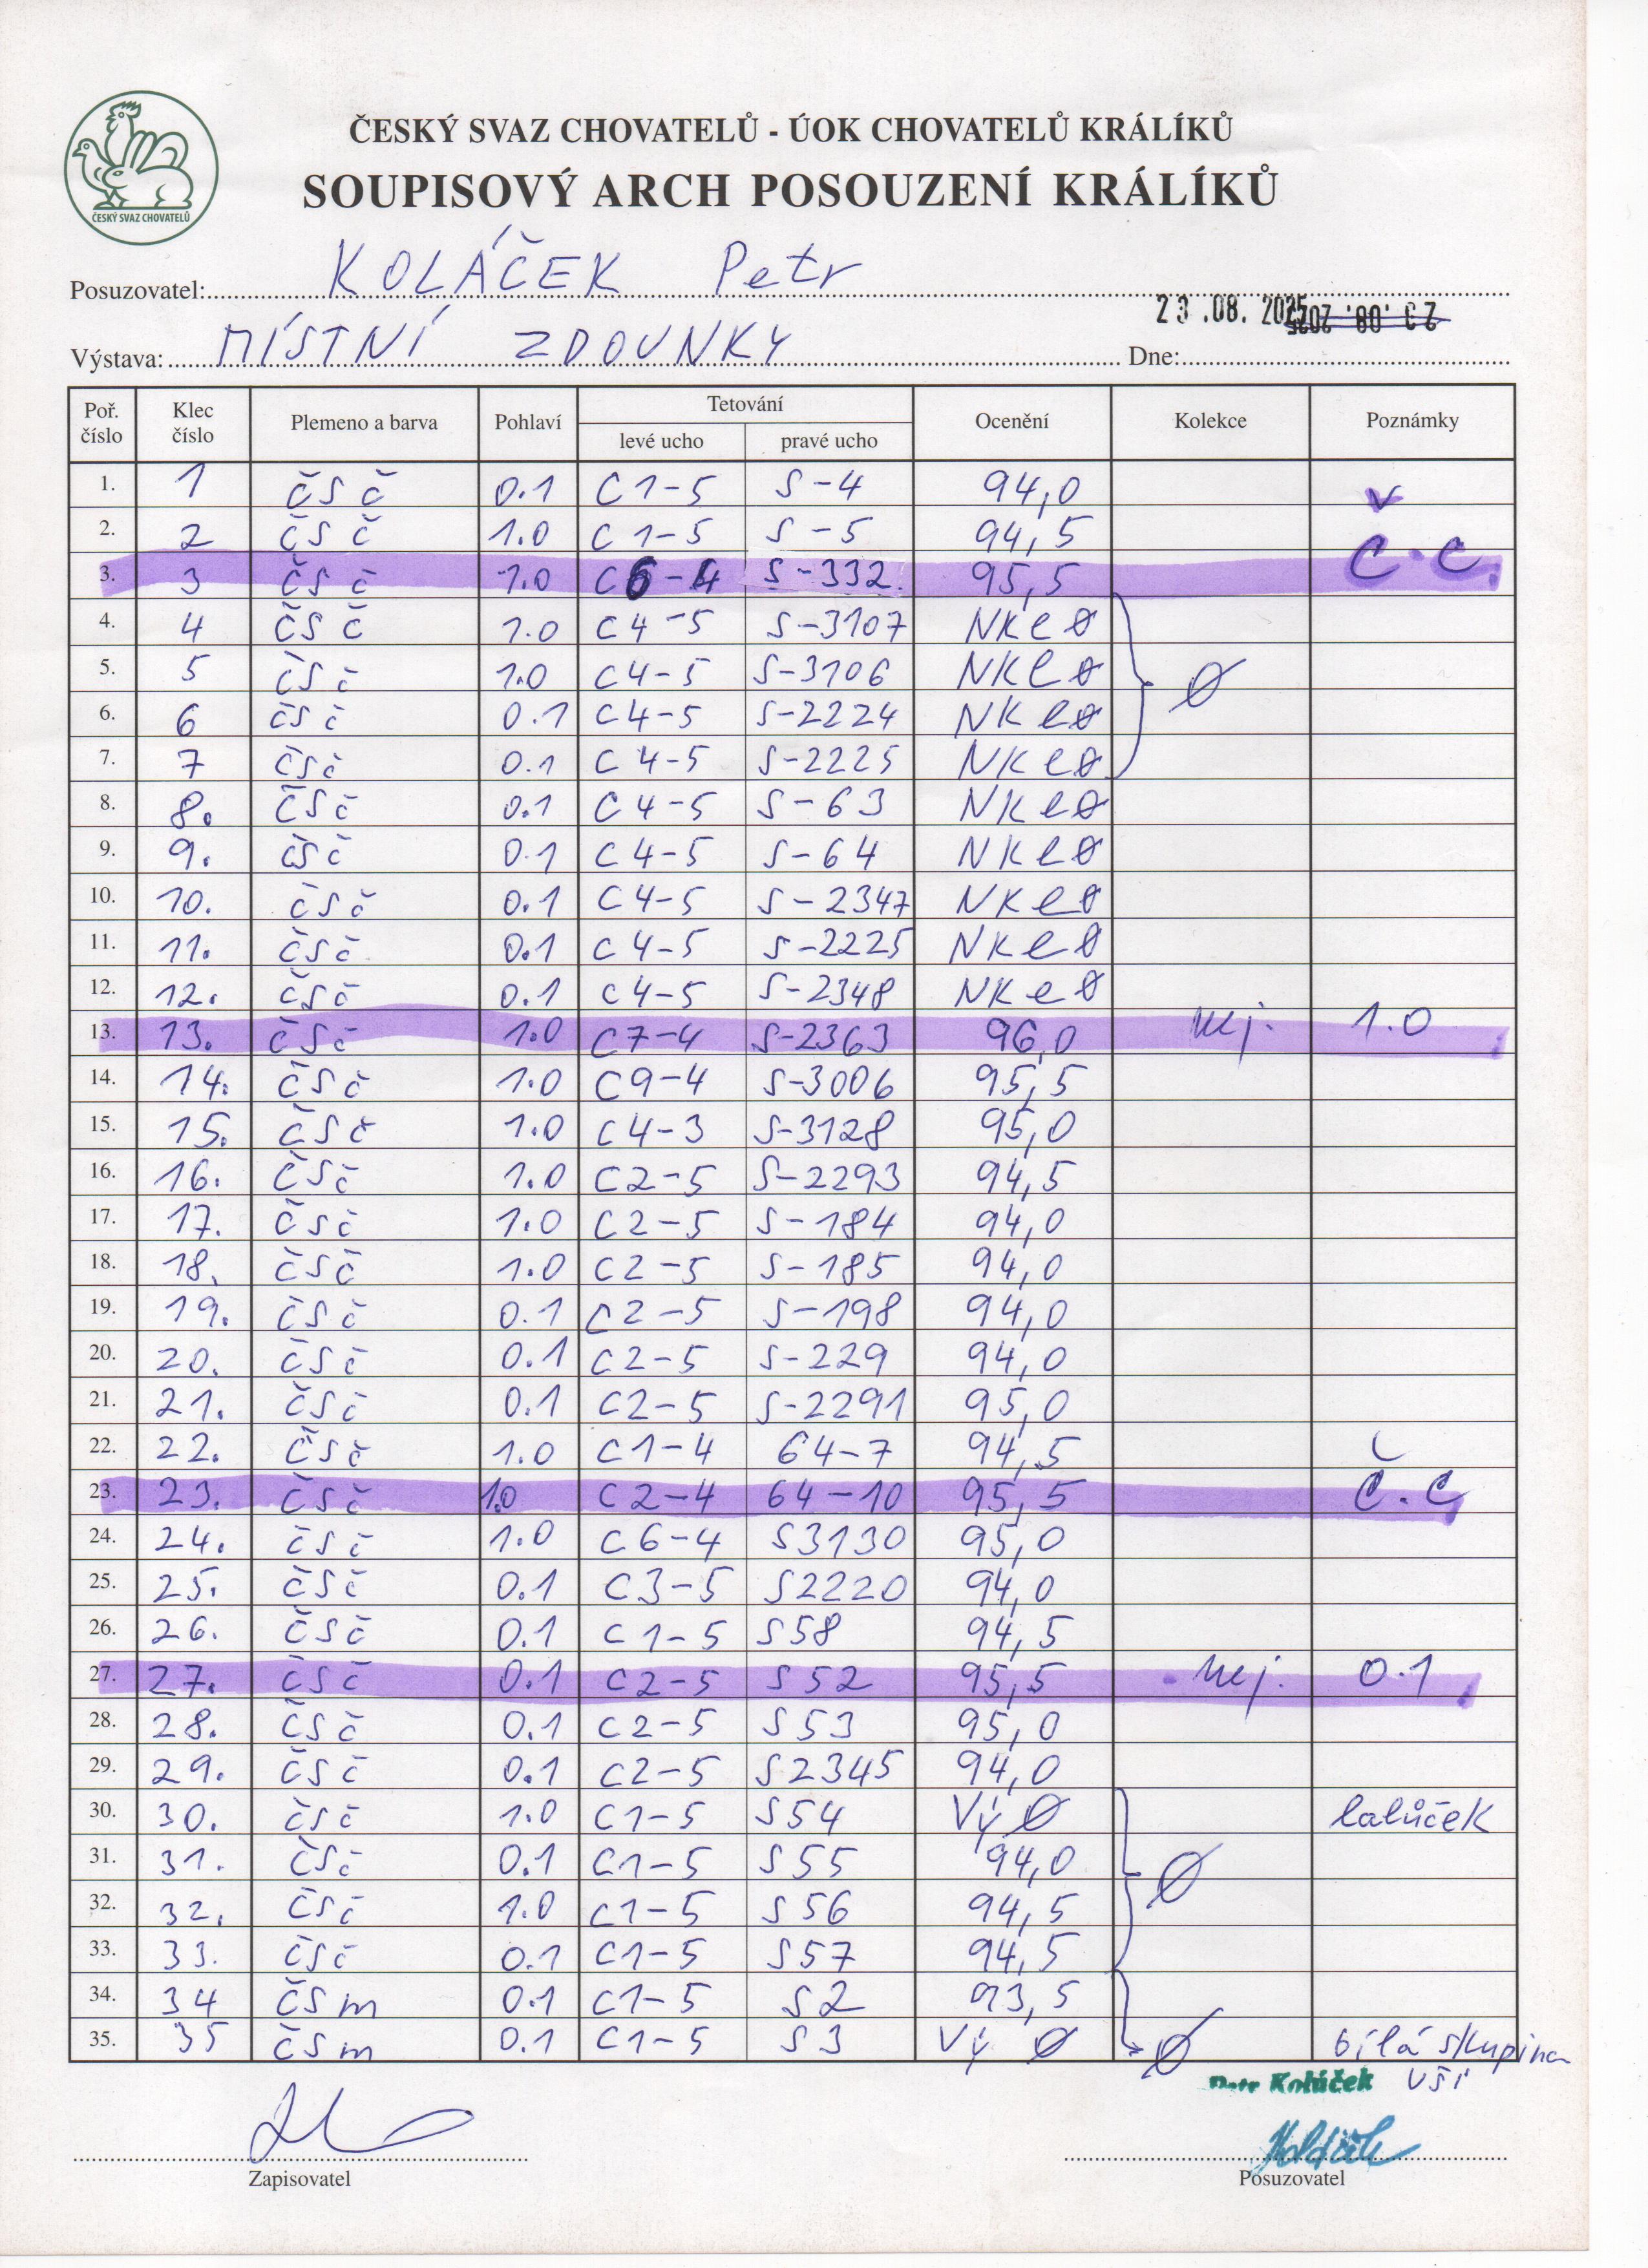 ČESKÝ SVAZ CHOVATELŮ
ČESKÝ SVAZ CHOVATELŮ - ÚOK CHOVATELŮ KRÁLÍKŮ
SOUPISOVÝ ARCH POSOUZENÍ KRÁLÍKŮ
Posuzovatel: KOLÁČEK Petr
23.08.2025
Výstava: MÍSTNÍ ZDOUNKY Dne:
Poř. číslo Klec číslo Plemeno a barva Pohlaví Tetování levé ucho pravé ucho Ocenění Kolekce Poznámky
1. 1 ČSč 0.1 C1-5 S-4 94,0
2. 2 ČSč 1.0 C1-5 S-5 94,5
3. 3 ČSč 1.0 C6-4 S-332 95,5 Č.C.
4. 4 ČSč 1.0 C4-5 S-3107 NKl Ø
5. 5 ČSč 1.0 C4-5 S-3106 NKl Ø Ø
6. 6 ČSč 0.1 C4-5 S-2224 NKl Ø
7. 7 ČSč 0.1 C4-5 S-2225 NKl Ø
8. 8. ČSč 0.1 C4-5 S-63 NKl Ø
9. 9. ČSč 0.1 C4-5 S-64 NKl Ø
10. 10. ČSč 0.1 C4-5 S-2347 NKl Ø
11. 11. ČSč 0.1 C4-5 S-2225 NKl Ø
12. 12. ČSč 0.1 C4-5 S-2348 NKl Ø
13. 13. ČSč 1.0 C7-4 S-2363 96,0 nej. 1.0
14. 14. ČSč 1.0 C9-4 S-3006 95,5
15. 15. ČSč 1.0 C4-3 S-3128 95,0
16. 16. ČSč 1.0 C2-5 S-2293 94,5
17. 17. ČSč 1.0 C2-5 S-184 94,0
18. 18. ČSč 1.0 C2-5 S-185 94,0
19. 19. ČSč 0.1 C2-5 S-198 94,0
20. 20. ČSč 0.1 C2-5 S-229 94,0
21. 21. ČSč 0.1 C2-5 S-2291 95,0
22. 22. ČSč 1.0 C1-4 64-7 94,5
23. 23. ČSč 1.0 C2-4 64-10 95,5 Č.C
24. 24. ČSč 1.0 C6-4 S3130 95,0
25. 25. ČSč 0.1 C3-5 S2220 94,0
26. 26. ČSč 0.1 C1-5 S58 94,5
27. 27. ČSč 0.1 C2-5 S52 95,5 nej. 0.1
28. 28. ČSč 0.1 C2-5 S53 95,0
29. 29. ČSč 0.1 C2-5 S2345 94,0
30. 30. ČSč 1.0 C1-5 S54 Vý Ø lalůček
31. 31. ČSč 0.1 C1-5 S55 94,0 Ø
32. 32. ČSč 1.0 C1-5 S56 94,5
33. 33. ČSč 0.1 C1-5 S57 94,5
34. 34 ČSm 0.1 C1-5 S2 93,5
35. 35 ČSm 0.1 C1-5 S3 Vý Ø Ø bílá skupina
Petr Koláček vší
Zapisovatel Posuzovatel